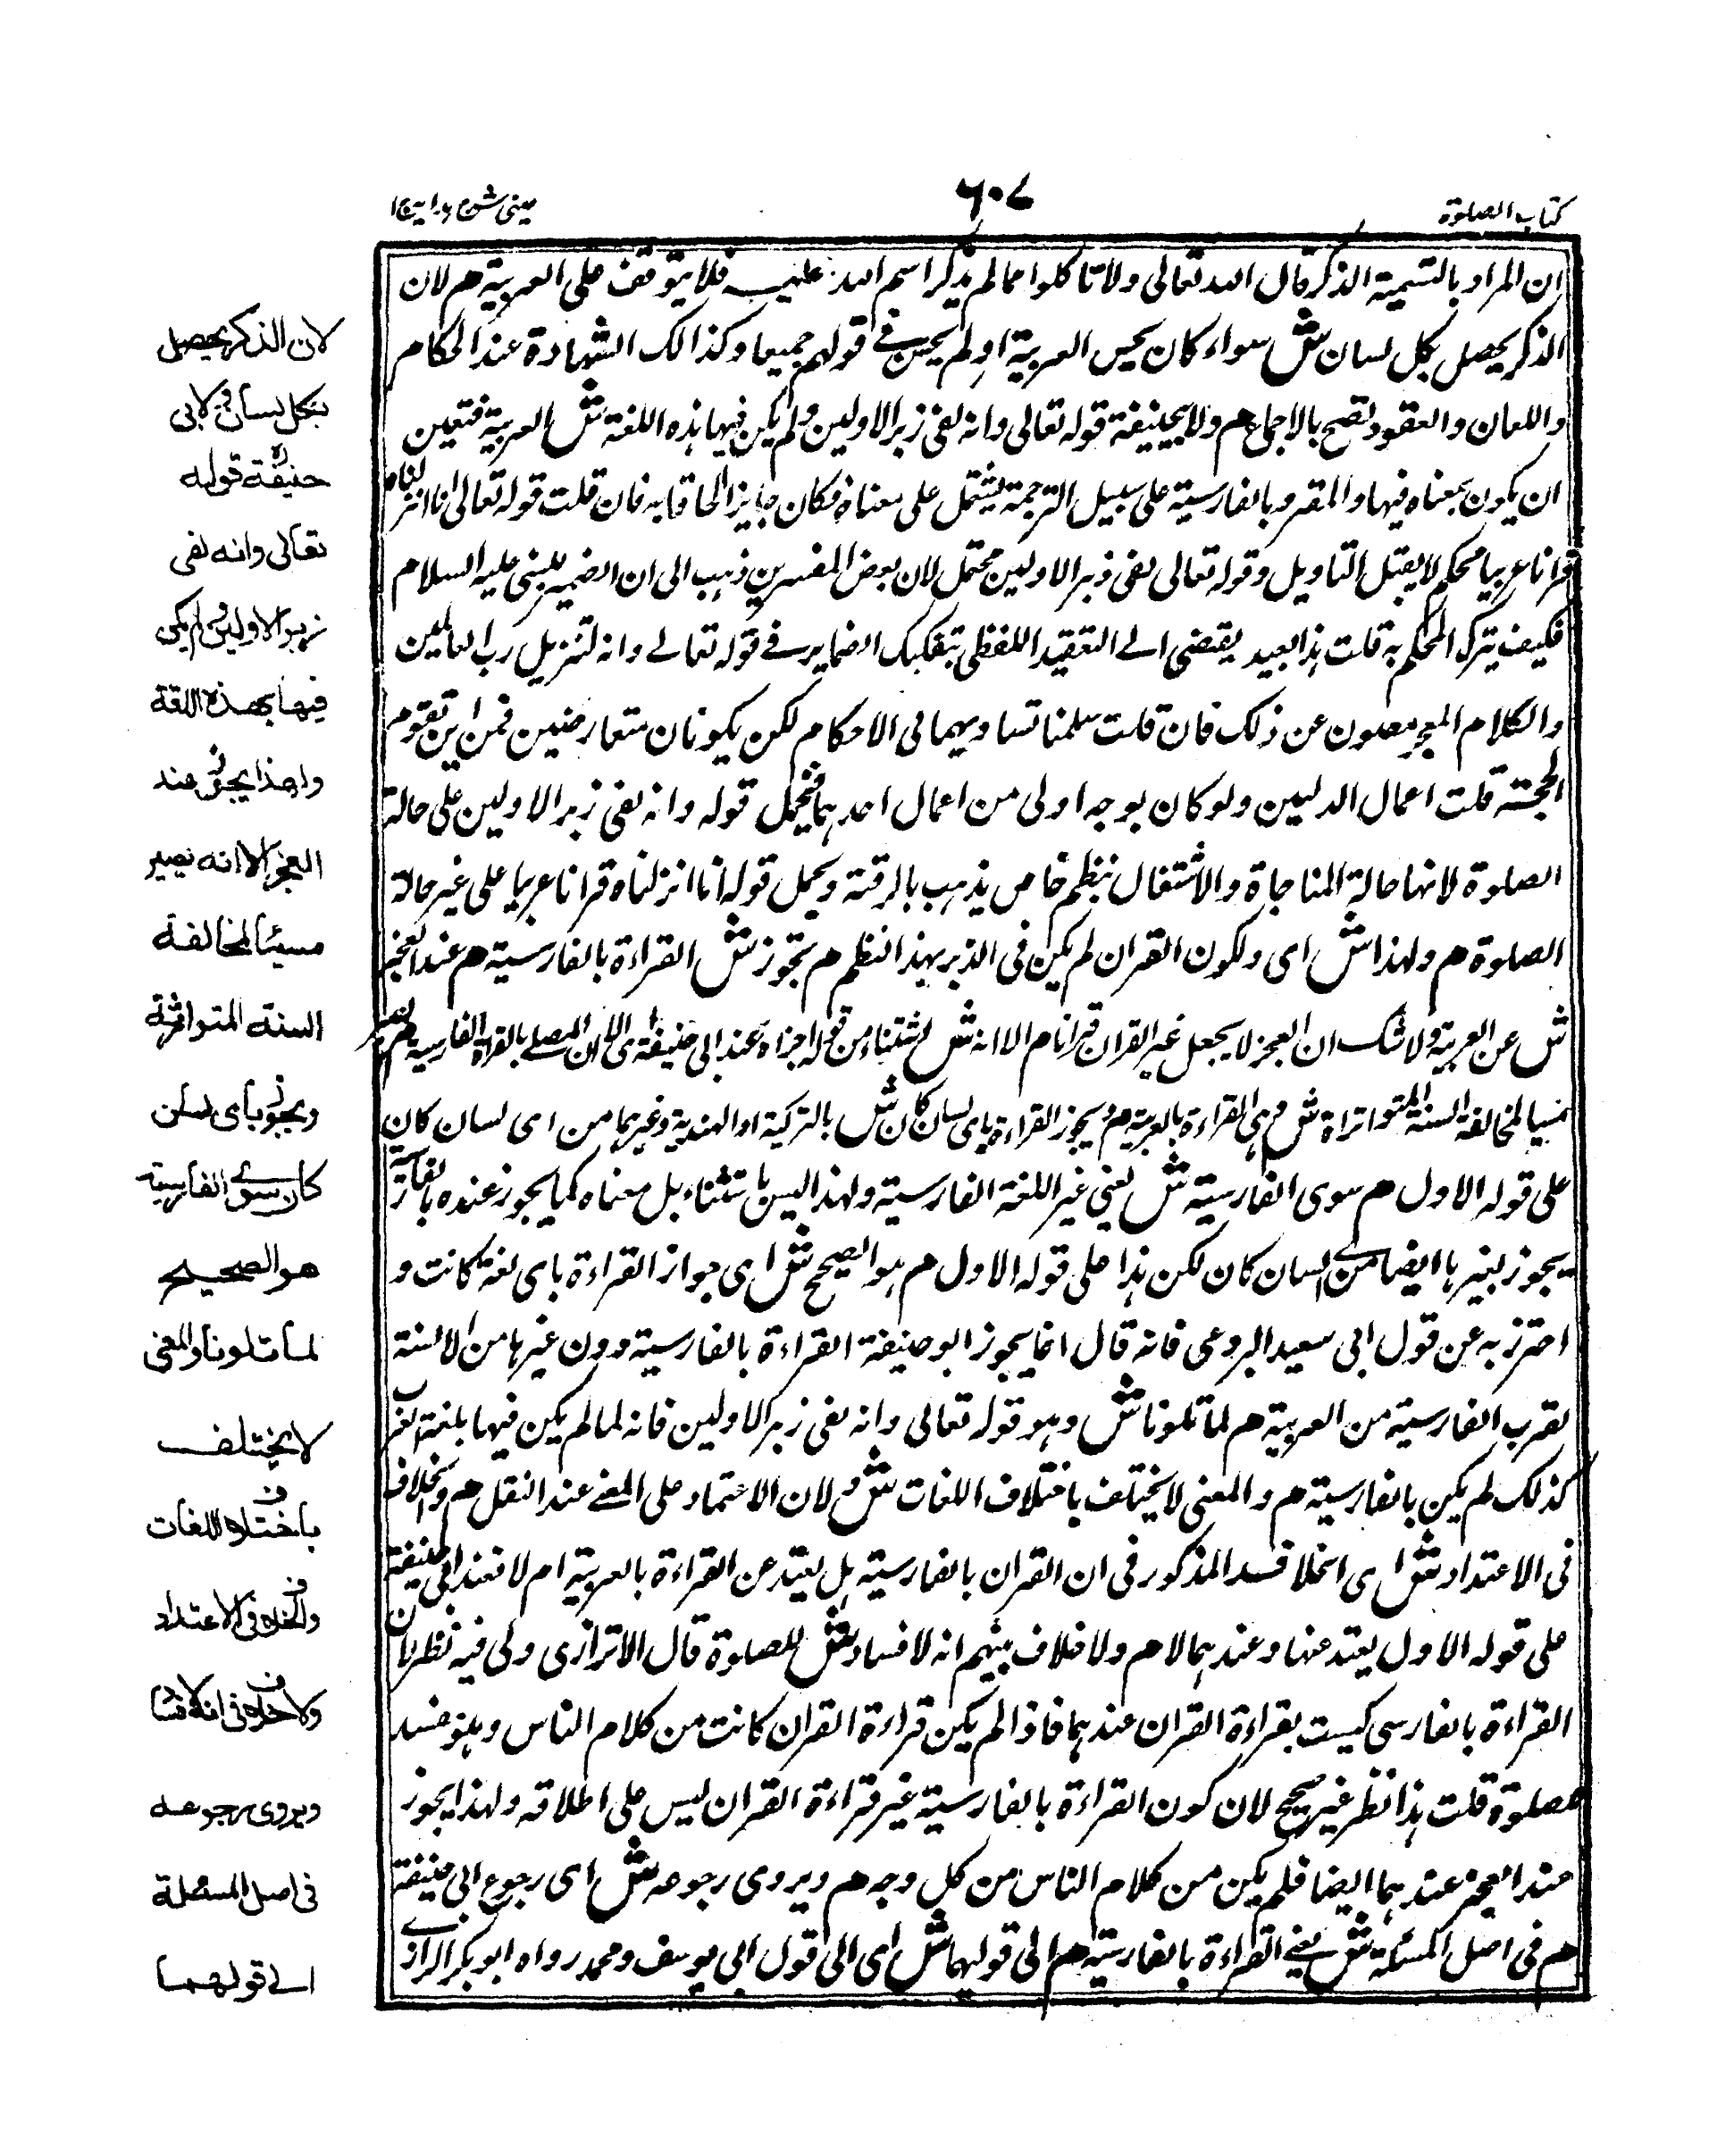 كتاب الصلوة
٦٠٤
عينى شرح هداية ج ا
ان المراد بالتسمية الذكر قال الله تعالى ولا تاكلوا مما لم يذكر اسم الله عليه فلا يتوقف على العربية هم لان
الذكر يحصل بكل لسان ش سواء كان يحسن العربية او لم يحسن فى قولهم جميعا وكذالك الشهادة عند الحكام
واللعان والعقود تصح بالاجماع هم ولابيحنيفة قوله تعالى وانه لفى زبر الاولين ولم يكن فيها بهذه اللغة ش العربية فتعين
ان يكون بمعناه فيها والمقرو بالفارسية على سبيل الترجمة يشتمل على معناه فكان جايزا الحاقا به فان قلت قوله تعالى انا انزلناه
قرانا عربيا محكم لا يقبل التاويل وقوله تعالى لفى زبر الاولين محتمل لان بعض المفسرين ذهب الى ان الضمير للنبى عليه السلام
فكيف يترك المحكم به قلت هذا بعيد يقتضى الى التعقيد اللفظى بتفكيك الضماير فى قوله تعالے وانه لتنزيل رب العالمين
والكلام المعجز مصون عن ذلك فان قلت سلمنا تساويهما فى الاحكام لكن يكونان متعارضين فمن اين تقوم
الحجة قلت اعمال الدليلين ولو كان بوجه اولى من اعمال احدهما فيحمل قوله وانه لفى زبر الاولين على حالة
الصلوة لانها حالة المناجاة والاشتغال بنظم خاص يذهب بالرقة ويحمل قوله انا انزلناه قرانا عربيا على غير حالة
الصلوة هم ولهذا ش اى ولكون القران لم يكن فى الزبر بهذا النظم هم تجوز ش القراءة بالفارسية هم عند العجز
ش عن العربية ولا شك ان العجز لا يجعل غير القران قرانا هم الا انه ش استثناء من قوله اجزاه عند ابى حنيفة اى الا ان المصلے بالقراءة الفارسية هم يصير
مسيا لمخالفة السنة المتواترة ش وهى القراءة بالعربية هم ويجوز القراءة باى لسان كان ش بالتركية او الهندية وغيرهما من اى لسان كان
على قوله الاول هم سوى الفارسية ش يعنى غير اللغة الفارسية ولهذا ليس باستثناء بل معناه كما يجوز عنده بالفارسية
يجوز بغيرها ايضا من اى لسان كان لكن هذا على قوله الاول هم هو الصحيح ش اى جواز القراءة باى لغة كانت و
احترز به عن قول ابى سعيد البروعى فانه قال انما يجوز ابو حنيفة القراءة بالفارسية دون غيرها من الالسنة
لقرب الفارسية من العربية هم لما تلونا ش وهو قوله تعالى وانه لفى زبر الاولين فانه لما لم يكن فيها بلغة العرب
كذلك لم يكن بالفارسية هم والمعنى لا يختلف باختلاف اللغات ش ولان الاعتماد على المعنے عند النقل هم والخلاف
فى الاعتداد ش اى الخلاف المذكور فى ان القران بالفارسية هل يعتد عن القراءة بالعربية ام لا فعند ابى حنيفة
على قوله الاول يعتد عنها وعندهما لا هم ولا خلاف بينهم انه لا فساد ش للصلوة قال الاترازى ولى فيه نظر لان
القراءة بالفارسى ليست بقراءة القران عندهما فاذا لم يكن قراءة القران كانت من كلام الناس وهو مفسد
للصلوة قلت هذا نظر غير صحيح لان كون القراءة بالفارسية غير قراءة القران ليس على اطلاقه ولهذا يجوز
عند العجز عندهما ايضا فلم يكن من كلام الناس من كل وجه هم ويروى رجوعه ش اى رجوع ابى حنيفة
هم فى اصل المسئلة ش يعنے القراءة بالفارسية هم الى قولهما ش اى الى قول ابى يوسف ومحمد رواه ابو بكر الرازے
لان الذكر يحصل
بكل لسان ولابى
حنيفة رہ قوله
تعالى وانه لفى
زبر الاولين ولم يكن
فيها بهذه اللغة
ولهذا يجوز عند
العجز الا انه يصير
مسيئا لمخالفة
السنة المتوارثة
ويجوز باى لسان
كان سوے الفارسية
هو الصحيح
لما تلونا والمعنى
لا يختلف
باختلاف اللغات
والخلاف فى الاعتداد
ولا خلاف فى انه لا فساد
ويروى رجوعه
فى اصل المسئلة
الے قولهما